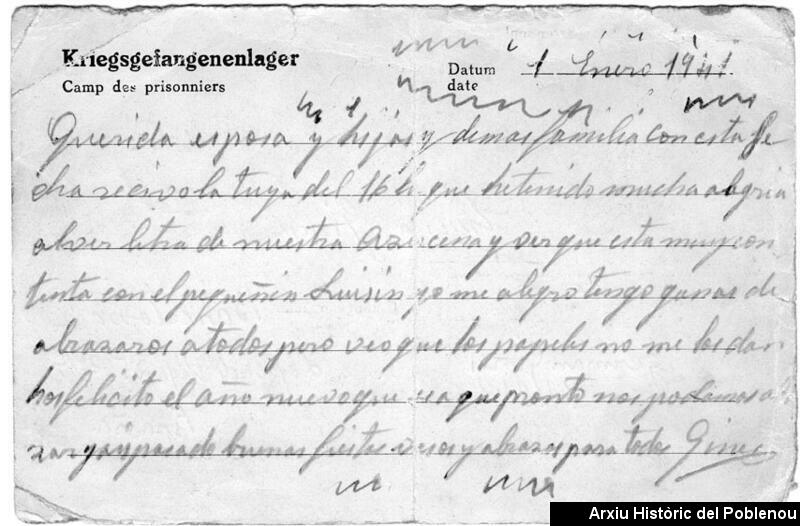 Kriegsgefangenenlager
Camp des prisonniers
Datum
date
1 Enero 1941
Querida esposa y hijos y demas familia con esta fe
cha recivo la tuya del 16 que he tenido mucha alegria
al ver letra de nuestra Azucena y ver que esta muy con
tenta con el pequeñin Luisin yo me alegro tengo ganas de
abrazaros a todos pero veo que los papeles no me los dan
hos felicito el año nuevo que sea que pronto nos podamos a
buenas fiestas vesos y abrazos para todos Gines
Arxiu Històric del Poblenou